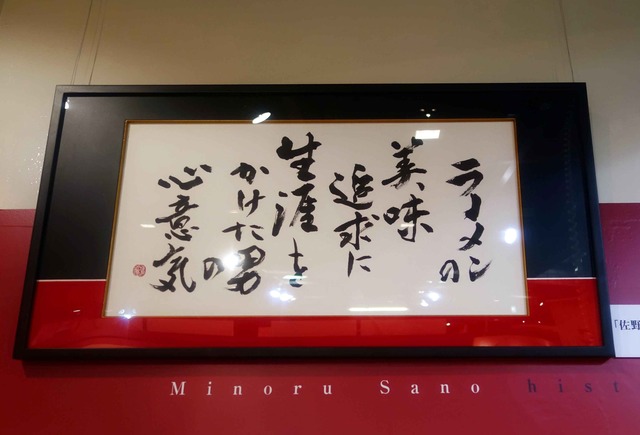 ラーメンの
美味
追求に
生涯を
かけた男
の
心意気
「佐野
Minoru Sano hist